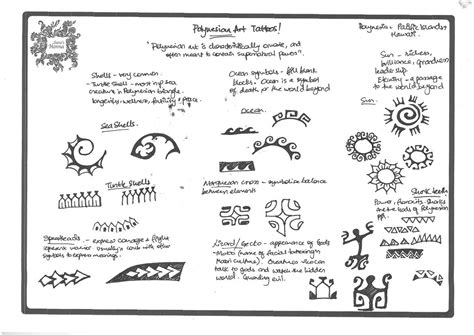 Polynesian Art Tattoos!
"Polynesian art is characteristically ornate, and
often meant to contain supernatural powers".
Polynesia - Pacific Islands +
Hawaii.
Shells - very common.
- Turtle Shell - most imp sea
creature in Polynesian triangle.
longevity, wellness, fertility + peace.
Ocean symbols - fill blank
blocks. Ocean is a symbol
of death or the world beyond
Sun - riches,
brilliance, grandness
leadership
Eternity - a passage
to the world beyond
Sea Shells.
Ocean.
Sun.
Turtle Shells
cross - symbolise balance
between elements
Shark teeth
Power,
Sharks
are the Gods of Polynesian
Spearheads - express courage + fight
represent warrior. Usually in
with other
symbols to express meanings.
Lizard/Gecko - appearance of Gods
+ Moko (name of facial tattooing in
Maori Culture). Creatures who can
talk to gods and watch the hidden
world. Guarding evil.